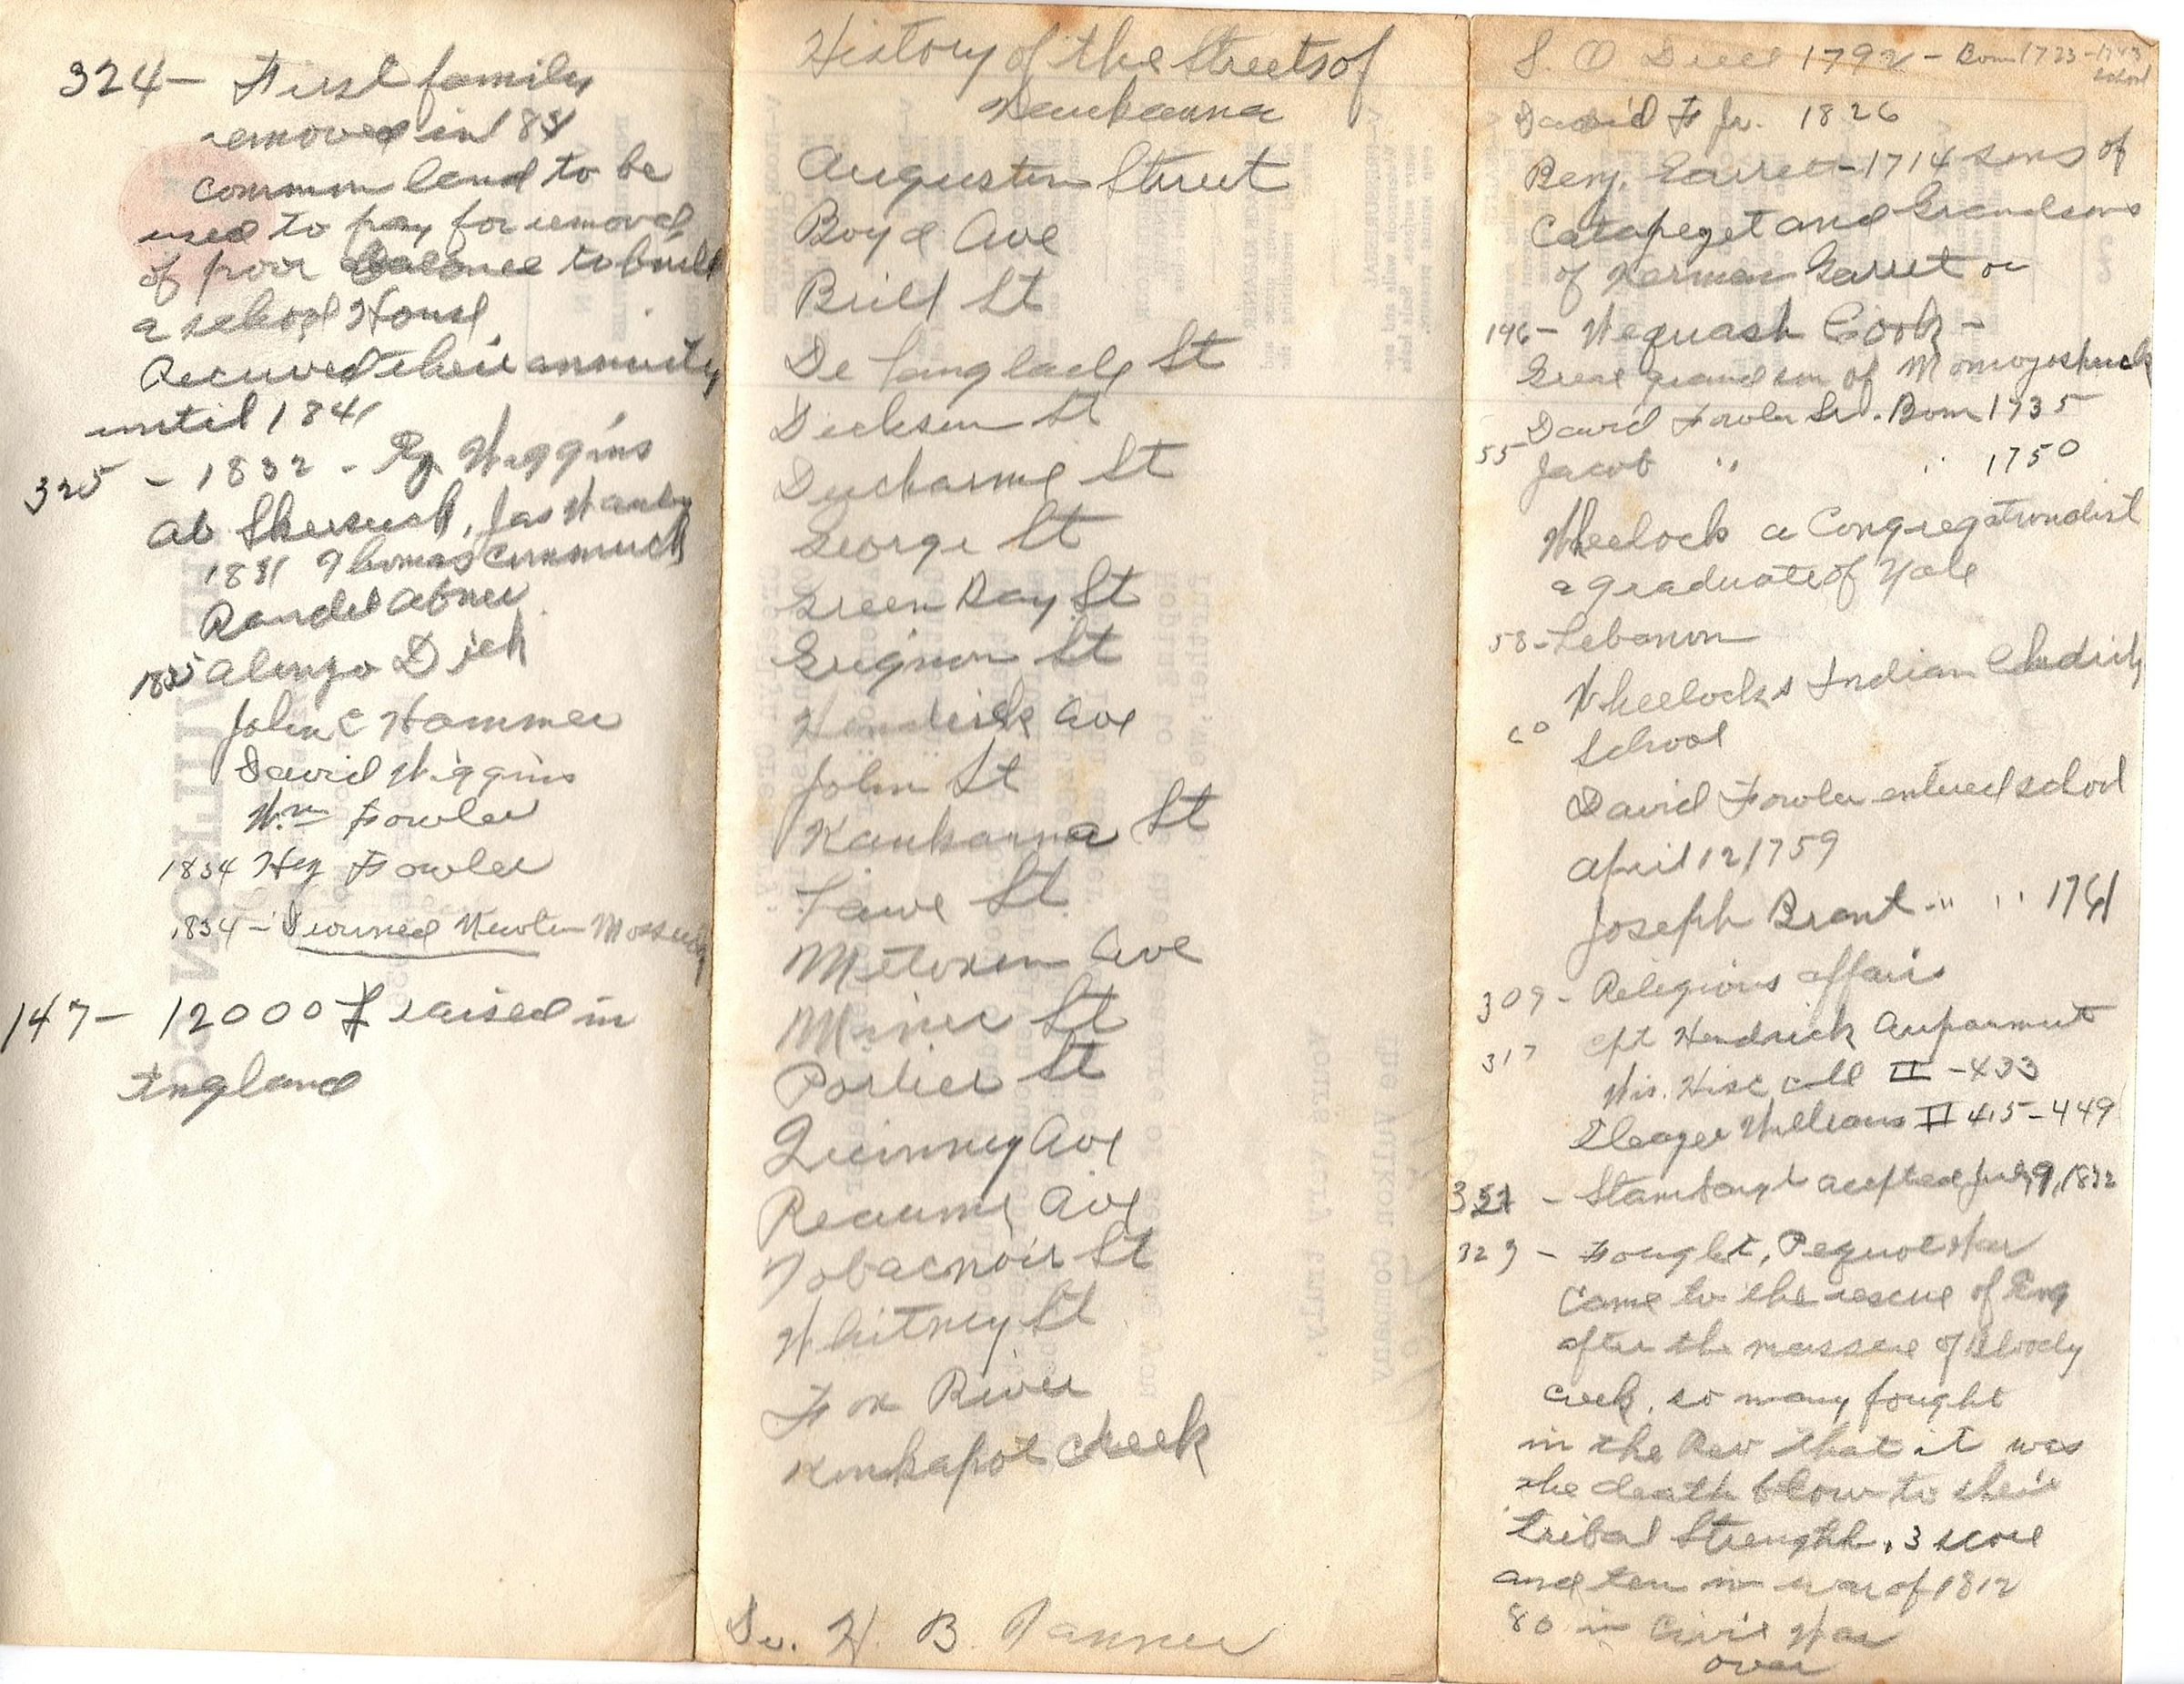 324 - First family
removed in 1831
common land to be
used to pay for removal
of poor balance to build
a school House
Received their annuity
until 1841
325 - 1832 - Wiggins
Ab Skeesuck, Jas Wauby
1831 Thomas Commuck
Randel Abner
1835 Alonzo Dick
John C Hammer
David Wiggins
Wm Fowler
1834 Hez Fowler
1834 - Newton
147 - 12000 £ raised in
England
History of the Streets of
Kaukauna
Augustin Street
Boyd Ave
Brill St
De Langlade St
Dickson St
Ducharme St
George St
Green Bay St
Grignon St
Hendrick Ave
John St
Kaukauna St
Lawe St
Metoxen Ave
Miner St
Porlier St
Quinney Ave
Reaume Ave
Tobacnoir St
Whitney St
Fox River
Konkapot Creek
Dr. H. B. Tanner
S. O 1792 - Born 1723 - 1743
school
David F Jr. 1826
Benj. Garret - 1714 sons of
Catapezet and Grandsons
of Herman Garret or
196 - Wequash Cook -
grandson of Momojoshuck
David Fowler Sr. Born 1735
55 Jacob " " 1750
Wheelock a Congregationalist
a graduate of Yale
58 - Lebanon
Wheelocks Indian Charity
60 School
David Fowler entered school
April 12 1759
Joseph Brant " " 1761
309 - Religious affairs
317 cpt Hendrick Aupaumut
Wis. Hist Coll II - 433
Eleazer Williams II 415 - 449
321 - Stambaugh accepted July 9, 1832
323 - Fought, Pequot War
Came to the rescue of Eng
after the massacre of Bloody
creek, so many fought
in the Rev that it was
the death blow to their
tribal Strength. 3 score
and ten in war of 1812
80 in Civil War
over